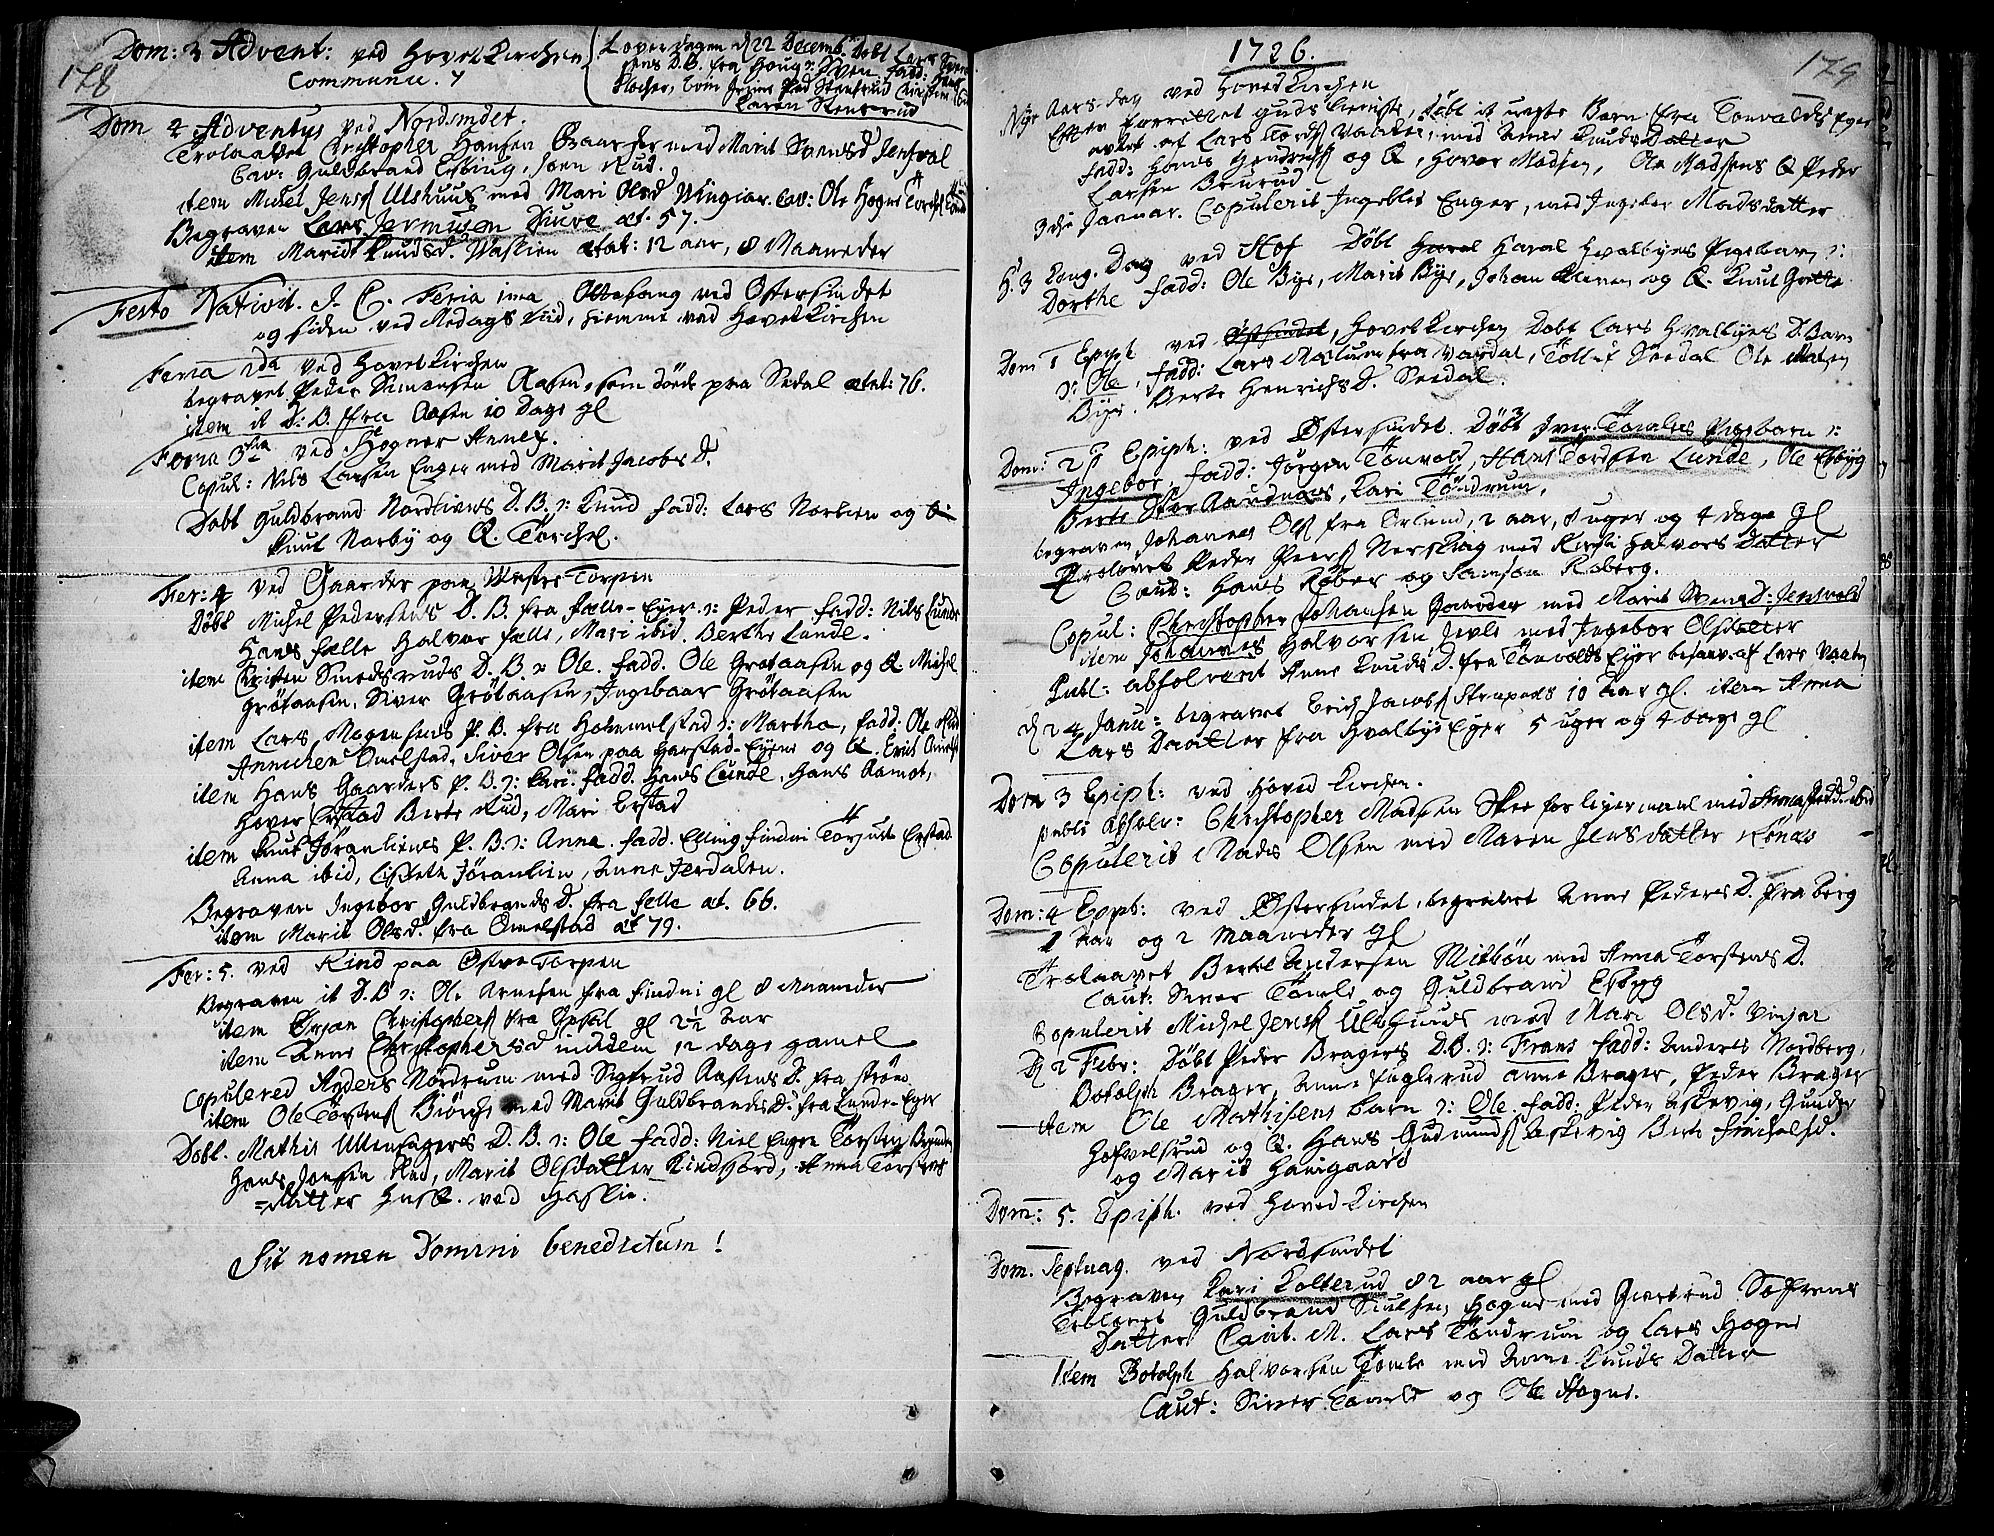 178
Dom: 3 Advent: ved Hovet Kirchen
Communic. 7
Loverdagen d 22 Decemb. Döbt Lars
D.B. fra Houg : Sven, fadd: Hans
Klocher,
Karen Stensrud
Dom 4 Adventus ved Nordsindet.
Trolaavet Christopher Hansen Gaarder med Marit Svensd Jensvol
Cav: Guldbrand Esbiug, Joen Rud.
item Michel Jenss Ulshuus med Mari Olsd Wingiar. Cav: Ole Hogne
Begraven Lars Jermusen Diuve æt. 57.
item Marit Knudsd. Waslien ætat: 12 aar, 8 Maaneder
Festo Nativit. J. C. Feria 1ma Ottesang ved Østersindet
og siden ved Medags tiid, hiemme ved Hovet Kirchen
Feria 2da ved Hovet Kirchen
begravet Peder Simensen Aasen, som döde paa Sedal ætat: 76.
item it D: B. fra Aasen 10 Dage gl
Feria 3tia ved Hogner Annex.
Copul: Nils Larsen Enger med Marit Jacobs D.
Döbt Guldbrand Nordliens D.B. : Knud fadd: Lars Norlien og
Knut Norby og Q. Torchel.
Fer: 4 ved Gaarder paa Westre Torpen
Döbt Michel Pedersens D.B fra Fælle-Eyer : Peder fadd: Nils Lunde
Hans Fælle Halvor Fælle, Mari ibid. Berthe Lunde.
item Christen Smedsruds D.B : Ole. fadd. Ole Grötaasen og Q Michel
Grötaasen, Siver Grötaasen, Ingebaar Grötaasen
item Lars Mogensens P. B. fra Hommelstad : Martha, fadd: Ole Rud
Annichen Omelstad, Siver Olsen paa Harstad-Eyene og Q. Erich Omelst
item Hans Gaarders P. B. : Kari. fadd. Hans Lunde, Hans Aamot,
Hover Erstad Berte Rud, Mari Erstad
item Knut Jöranliens P. B. : Anna. fadd. Elling Findni Torjusen Erstad
Anna ibid, Lisbeth Jöranlien, Anne Jerdalen.
Begraven Ingebor Guldbrands D. fra Felle æt. 66.
item Marit Olsd. fra Omelstad æt 79.
Fer: 5. ved Kind paa Østre Torpen
Begraven it D.B : Ole Arnesen fra Findni gl 8 Maaneder
item Örjan Christophers fra gl 2½ Aar
item Anne Christophersd ibidem 12 dage gamel
Copulered Anders Nordrum med Sigfrud Aastens D. fra Ström
item Ole Torstens Biörche med Marit Guldbrands D. fra Lunde-Eyer
Döbt. Mathis Ullensagers D.B. : Ole fadd: Niel Enger Torsten
Hans Jensen Rud, Marit Olsdatter Kindsjord, Anna Torstens
=datter Huse. ved Haslie.
Sit nomen Domini benedictum!
179
1726.
Nye Aars-dag ved Hoved Kirchen
Efter forrettet Guds tieniste, döbt it uegte Barn fra Tonvolds Eyer
avlet af Lars Tords Vaaten, med Anne Knuds Datter
fadd: Hans Hendrichs og Q, Hover Madsen, Ole Madsens Q Peder
Larsen Bruvud
3die Januar. Copulerit Ingeblet Enger, med Ingeber Madsdatter
H. 3 Kong. Dag ved Hof Döbt Haral Haral Hvalbyes Pigebarn :
Dorthe fadd: Ole Bye, Marit Bye, Johan Kleven og Q. Knut Grette
Dom 1 Epiph ved Østsindet, Hovet Kirchen Döbt Lars Hvalbyes D. Barn
: Ole, fadd: Lars Aslum fra Vardal, Tollef Seedal Ole
Bye. Berte Henrichs D. Seedal.
Dom: 2 p Epiph: ved Østersindet. Döbt Iver Tomles Pigebarn :
Ingebor, fadd: Jörgen Tonvold, Hans Tordsen Lunde, Ole Esbyg
Berte Stor Raudnæs, Kari Töndrum,
begraven Johannes Ols fra Örlund, 2 aar, 8 uger og 4 dage gl
Trolovet Peder Peers Nerskiag med Kirsti Halvors Datter
Caut: Hans Röber og Samson Koberg.
Copul: Christopher Johansen Gaarder med Marit Svens D: Jensvold
item Johannes Halvorsen Jevle med Ingebor Olsdatter
Publ: absolverit Anne Knuds D. fra Tonvolds Eyer besov. af Lars Vaaten
d 24 Janu: begravet Erich Jacobs Strupens 10 Aar gl. item Anna
Lars Daatter fra Hvalbye Eyer 5 uger og 4 dage gl
Dom 3 Epiph: ved Hoved Kirchen.
publ: Absolv: Christopher Madsen Skee for ligermaal med Anna Ped. d. ibid
Copulerit Mads Olsen med Maren Jensdatter Könes
Dom: 4 Epiph: ved Østersindet, begravet Anne Peders D. fra Berg
1 Aar og 2 Maaneder gl
Trolaavet Bertel Andersen Mitbön med Anna Torstens D.
Caut: Siver Tomle og Guldbrand Esbyg
Copulerit Michel Jenss Ulshuus med Mari Ols D. Vinjar
D. 2 Febr: Döbt Peder Bragers D.B. : Frans fadd: Anders Nordberg,
Botolph Brager, Anne Fuglerud Anne Brager, Peder Brager
item Ole Mathisens barn : Ole fadd. Peder Askevig, Gunder
Hofvelsrud og Q. Hans Gudmunds Askevig Berte
og Marit Haugaard
Dom: 5. Epiph. ved Hoved Kirchen
Dom. Septuag. ved Nordsindet
Begraven Kari Kolterud 82 aar gl
Trolovet Guldbrand Siulsen Hogne med Giertrud Søfrens
Datter Caut. M. Lars Töndrum og Lars Hogne
Item Botolph Halvorsen Tomle med Anne Knuds Datter
Caut: Siver Tomle og Ole Hogne.